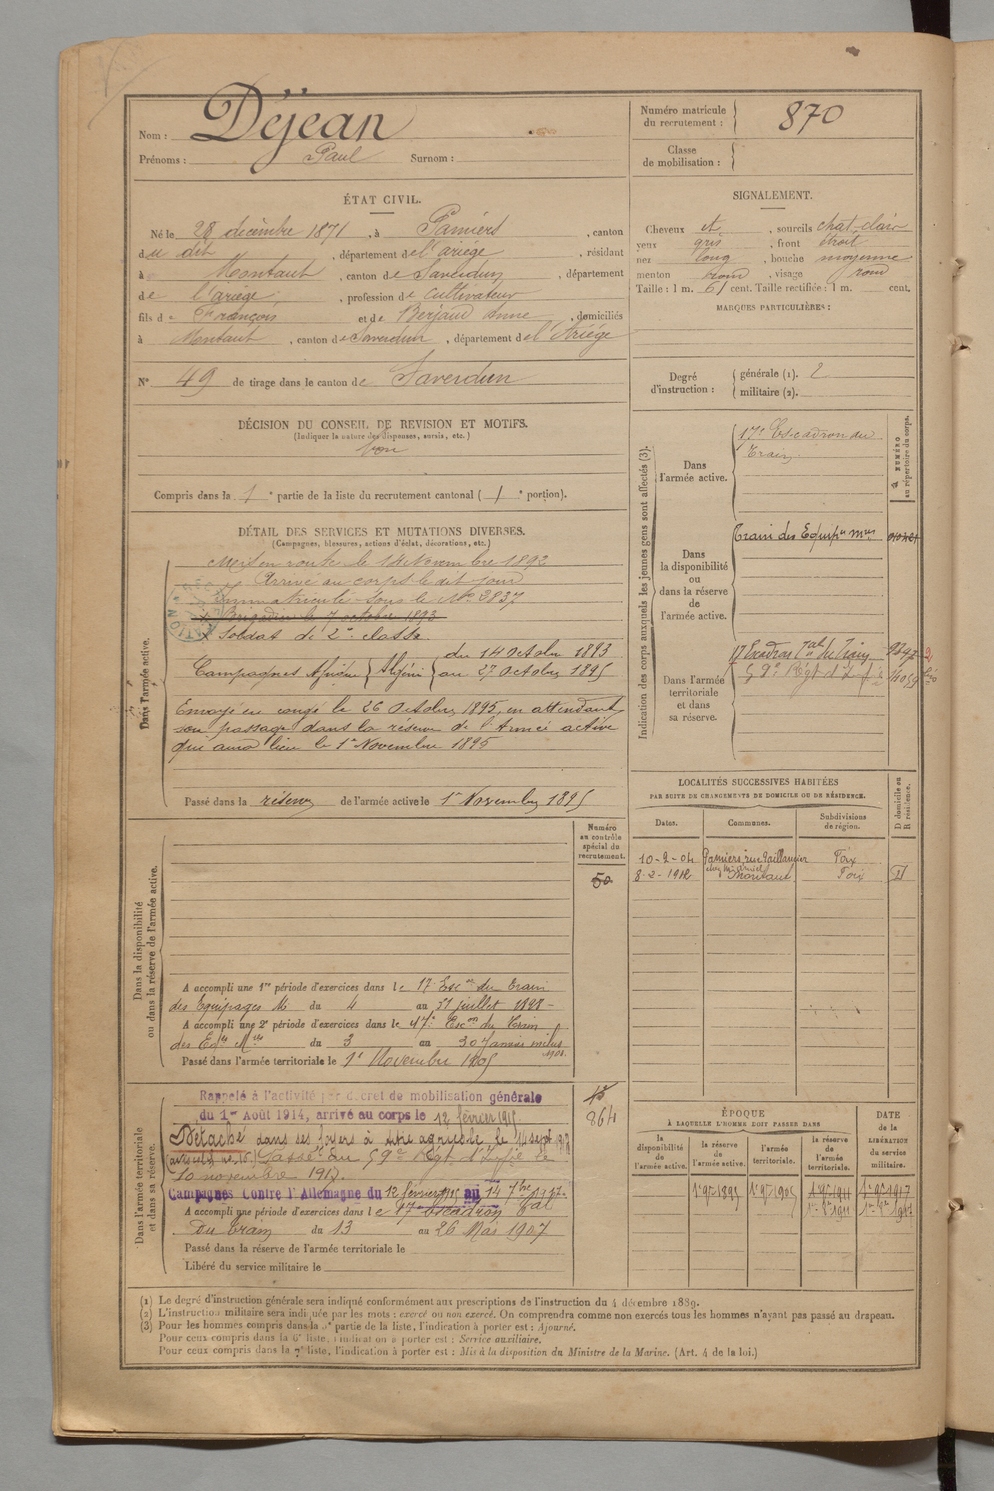 Nom : Déjean
Prénoms : Paul Surnom :
Numéro matricule du recrutement : 870
Classe de mobilisation :
ÉTAT CIVIL.
Né le 28 décembre 1871, à Pamiers, canton
du dit, département de l'ariège, résidant
à Montaut, canton de Saverdun, département
de l'ariège, profession de cultivateur
fils de François et de Berjaud Anne, domiciliés
à Montaut, canton de Saverdun, département de l'Ariége
N° 49 de tirage dans le canton de Saverdun
SIGNALEMENT.
Cheveux et, sourcils chat-clair
yeux gris, front étroit
nez long, bouche moyenne
menton rond, visage rond
Taille : 1 m. 61 cent. Taille rectifiée : 1 m. cent.
MARQUES PARTICULIÈRES :
Degré d'instruction : générale (1). 2
militaire (2).
DÉCISION DU CONSEIL DE REVISION ET MOTIFS.
(Indiquer la nature des dispenses, sursis, etc.)
bon
Compris dans la 1e partie de la liste du recrutement cantonal (1e portion).
DÉTAIL DES SERVICES ET MUTATIONS DIVERSES.
(Campagnes, blessures, actions d'éclat, décorations, etc.)
Dans l'armée active.
Mis en route le 14 Novembre 1892
Arrivé au corps le dit jour
Immatriculé sous le No 3837
Brigadier le 7 octobre 1893
x Soldat de 2e classe.
Campagnes Afrique } Algérie { du 14 Octobre 1893
au 27 Octobre 1895
Envoyé en congé le 26 Octobre 1895, en attendant
son passage dans la réserve de l'Armée active
qui aura lieu le 1er Novembre 1895
Passé dans la réserve de l'armée active le 1er Novembre 1895
Indication des corps auxquels les jeunes gens sont affectés (3).
NUMÉRO au répertoire du corps.
Dans l'armée active. 17e Escadron du
Train.
Dans la disponibilité ou dans la réserve de l'armée active. Train des Equip. mres
Dans l'armée territoriale et dans sa réserve. 17 Escadron Tal du Train
59e Régt d'Inf.
LOCALITÉS SUCCESSIVES HABITÉES
PAR SUITE DE CHANGEMENTS DE DOMICILE OU DE RÉSIDENCE.
Dates. Communes. Subdivisions de région. D domicile ou R résidence.
10-2-04 Pamiers, rue Foix
8-2-1912 Montaut Foix
Numéro au contrôle spécial du recrutement.
50
Dans la disponibilité ou dans la réserve de l'armée active.
A accompli une 1re période d'exercices dans le 17 Escon du Train
des Equipages Mres du 4 au 31 juillet 1898
A accompli une 2e période d'exercices dans le 17e Escon du Train
des Eqes Mres du 3 au 30 Janvier 1901.
Passé dans l'armée territoriale le 1er Novembre 1905
Dans l'armée territoriale et dans sa réserve.
Rappelé à l'activité par décret de mobilisation générale
du 1er Août 1914, arrivé au corps le 12 février 1915
Détaché dans ses foyers à titre agricole le 14 sept 1917
Passé au 59e Régt d'Infie le
10 novembre 1917.
Campagnes Contre l'Allemagne du 12 février 1915 au 14 7bre 1917.
A accompli une période d'exercices dans le 17e Escadron Tal
du Train du 13 au 26 Mai 1907
Passé dans la réserve de l'armée territoriale le
Libéré du service militaire le
864
ÉPOQUE
À LAQUELLE L'HOMME DOIT PASSER DANS
DATE DE LA LIBÉRATION du service militaire.
la disponibilité de l'armée active. la réserve de l'armée active. l'armée territoriale. la réserve de l'armée territoriale.
1er 9bre 1895 1er 9bre 1905 1er 9bre 1911 1er 9bre 1917
(1) Le degré d'instruction générale sera indiqué conformément aux prescriptions de l'instruction du 4 décembre 1889.
(2) L'instruction militaire sera indiquée par les mots : exercé ou non exercé. On comprendra comme non exercés tous les hommes n'ayant pas passé au drapeau.
(3) Pour les hommes compris dans la partie de la liste, l'indication à porter est : Ajourné.
Pour ceux compris dans la 6e liste, l'indication à porter est : Service auxiliaire.
Pour ceux compris dans la 7e liste, l'indication à porter est : Mis à la disposition du Ministre de la Marine. (Art. 4 de la loi.)